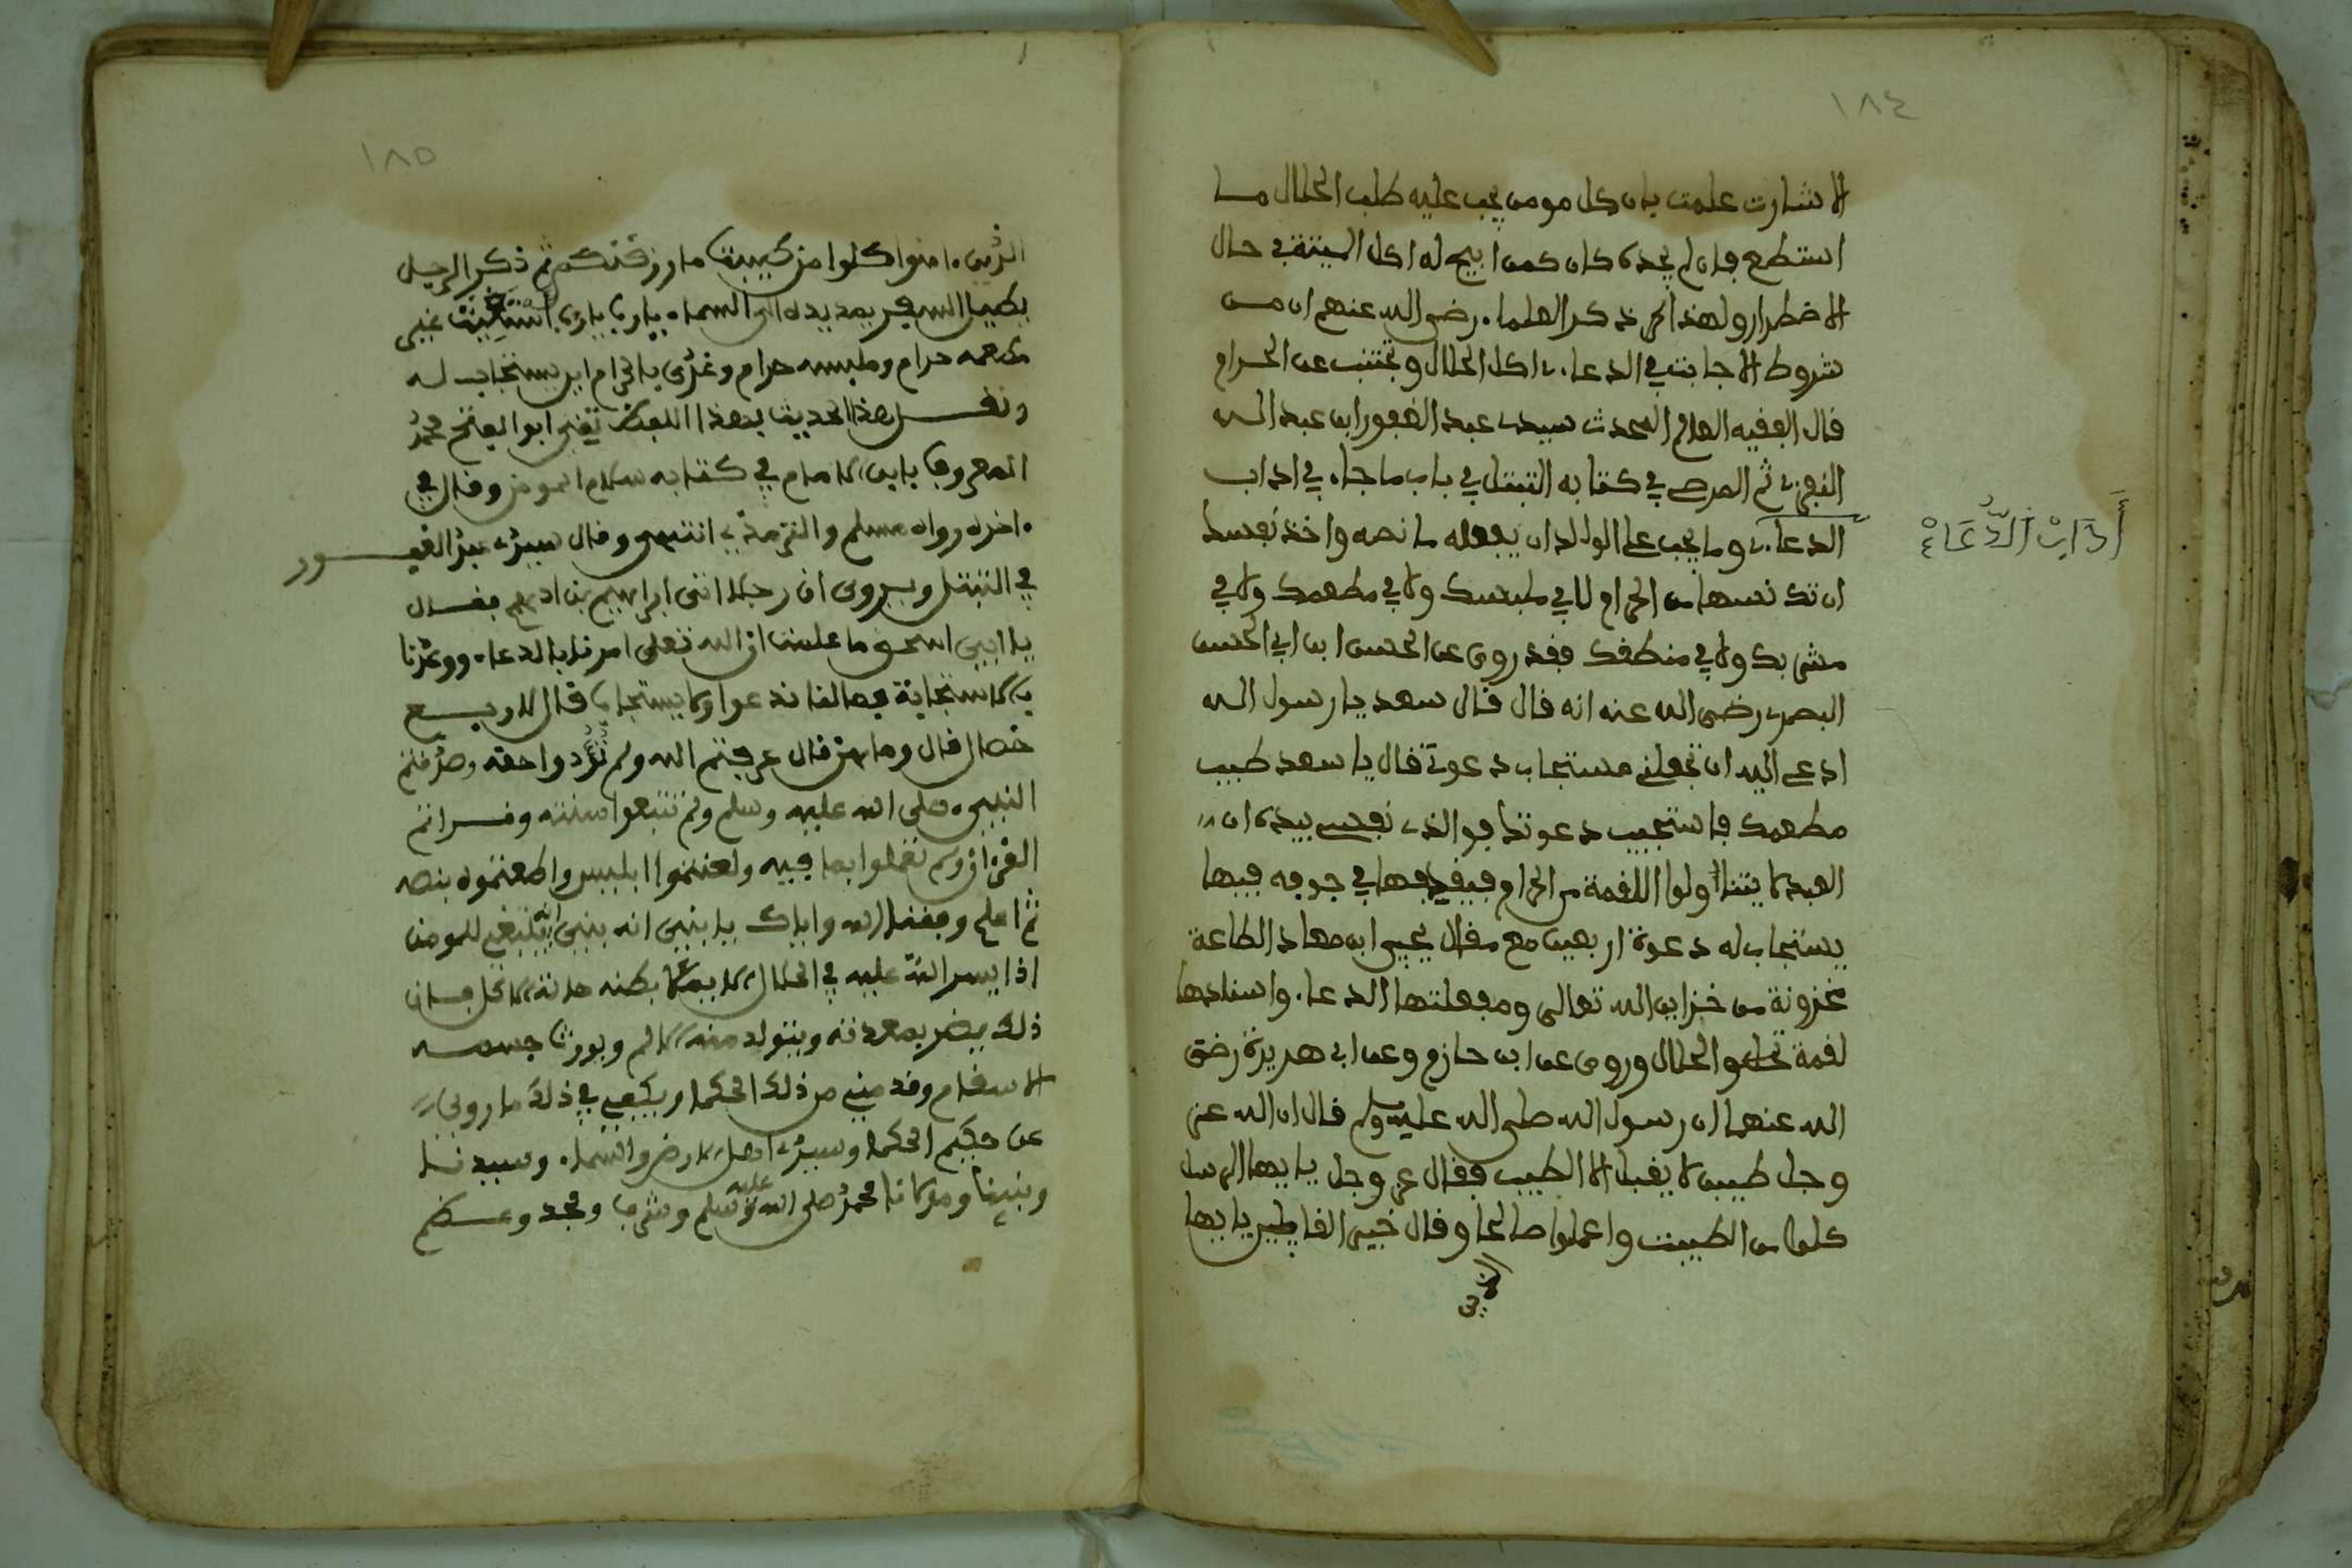 ١٨٤
الاشارت علمت بان كل مومن يجب عليه طلب الحلال ما
استطع فان لم يجده كان كمن ابيح له اكل الميتة في حال
الاضطرار ولهذا ذكر العلماء رضي الله عنهم ان من
شروط الاجابت في الدعاء اكل الحلال وتجتنب عن الحرام
قال الفقيه العالم المحدث سيدي عبد الغفور ابن عبد الله
ثم في كتابه التبتل في باب ما جاء في اداب
الدعاء وما يجب على الوالد ان يفعله ما نصه واخذ نفسك
أَدَابْ الدُّعَاءْ
ان من الحرام لا في ملبسك ولا في مطعمك ولا في
مشربك ولا في منطقك فقد روى عن الحسن ابن ابي الحسن
البصري رضي الله عنه انه قال قال سعد يا رسول الله
ادعى الله ان تجعلني مستجاب دعوة قال يا سعد طيب
مطعمك فاستجيب دعوتك فوالذي نفسي بيده ان
العبد لا يتناولوا اللقمة من الحرام في جوفه فيها
يستجاب له دعوة اربعين مع مقال يحيى ابن معاذ الطاعة
مخزونة من خزاين الله تعالى ومفعلتها الدعاء واسنادها
لقمة الحلال وروى عن ابن حازم وعن ابي هريرة رضي
الله عنهما ان رسول الله صلى الله عليه وسلم قال ان الله عز
وجل طيب لا يقبل الا الطيب فقال عز وجل يا يها الرسل
كلوا من الطيبت واعملوا صالحا وقال يا يها
الذين
١٨٥
الذين ءامنوا كلوا من طيبت ما رزقنكم ثم ذكر الرجل
يطيل السفر يمد يده الى السماء يارب يارب
مطعمه حرام وملبسه حرام وغذى بالحرام اين يستجاب له
ونقل هذا الحديث بهذا اللفظ ابو الفتح محمد
المعروف بابن الامام في كتابه سلاح المومن وقال في
ءاخره رواه مسلم والترمذي انتهى وقال سيدي عبد الغفور
في التبتل ويروى ان رجلا اتى ابراهيم بن ادهم فقال
يا ابى اسحق ما علمت ان الله تعلى امرنا بالدعاء ووعدنا
بالاستجابة فما لنا ندعوا ولا يستجاب قال لاربع
خصال قال وما هن قال عرفتم الله ولم تؤدوا حقه وصدقتم
النبي صلى الله عليه وسلم ولم تتبعوا سنته وقراتم
القرءان ولم تعملوا بما فيه ولعنتموا ابليس واطعتموه بنصه
ثم اعلم وفقنا الله واياك يا بني انه ينبغي للمومن
اذا يسر الله عليه في الحلال بطنه الاكل فان
ذلك يضر بمعدته ويتولد منه الالم ويورث جسمه
الاسقام وقد من ذلك الحكما ويكفي في ذلك ما روى
عن حكيم الحكما وسيد اهل الارض والسماء وسيدنا
ونبينا ومولانا محمد صلى الله عليه وسلم وشرف ومجد وعظم